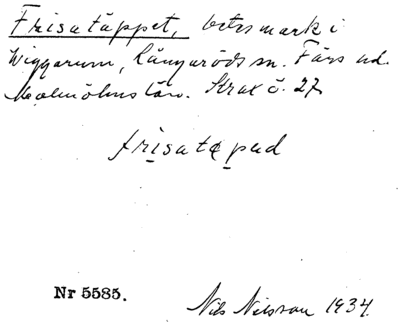 Frisatäppet, betesmark i
Wiggarum, Långaröds sn. Färs hd.
Malmöhus län. Strax ö. 27
frisatepad
Nr 5585.
Nils Nilsson 1934.